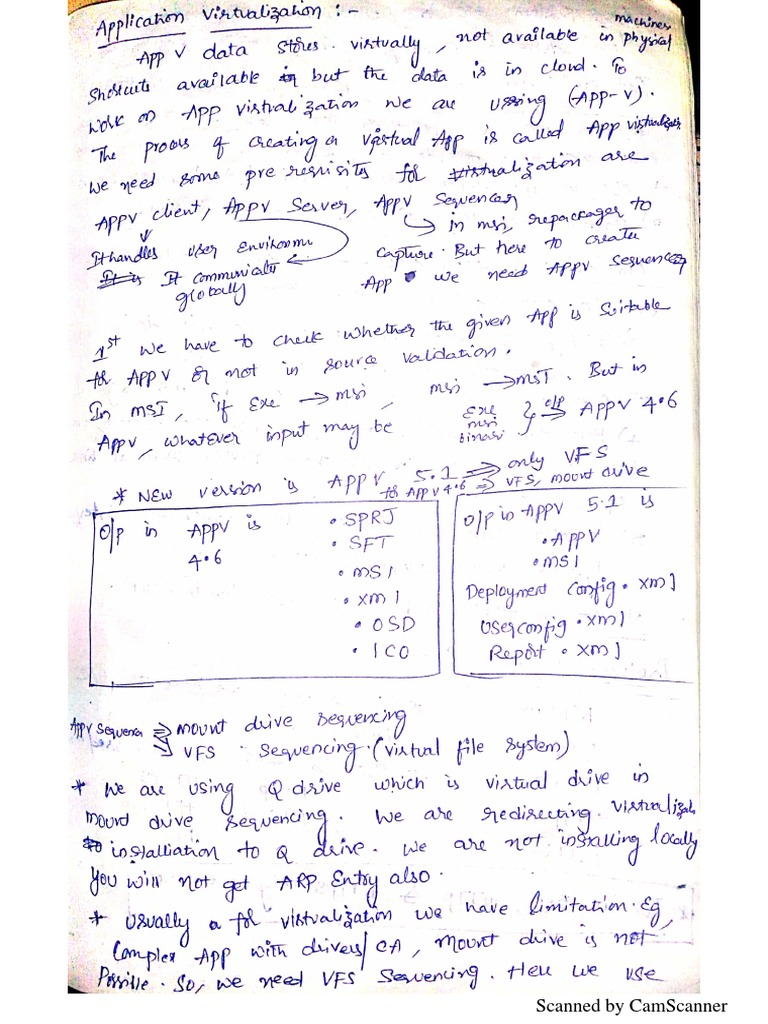 Application Virtualization :-
App V data stores virtually, not available in physical machines
Shortcuts available in but the data is in cloud. To
work on App virtualization we are ussing (App-V).
The process of creating a virtual App is called App virtualiza
We need some pre requisits for virtualization are
Appv client, Appv Server, Appv Sequencer
It handles user environme
It is It communicate
globally
in msi, repackager to
capture. But here to create
App we need Appv Sequencer
1st we have to check whether the given App is Suitable
for App V or not in source validation.
In MSI, if Exe → msi, msi → MST. But in
Appv, whatever input may be
Exe
msi
binari
o/p ⇒ App V 4.6
* NEW version is APPV 5.1 ⇒ only VFS
for App V 4.6 ⇒ VFS, mount drive
O/p in APPV is
4.6
• SPRJ
• SFT
• MSI
• XMl
• OSD
• ICO
O/p in APPV 5.1 is
• APPV
• MSI
Deployment config • xml
Userconfig • xml
Report • xml
APPV Sequencer ⇒ mount drive sequencing
⇒ VFS Sequencing (virtual file system)
* We are using Q drive which is virtual drive in
mount drive sequencing. We are redirecting virtualizatn
installiation to Q drive. We are not installing locally
You will not get ARP Entry also.
* Usually a for virtualization we have limitation. Eg,
Complex App with drivers/CA, Mount drive is not
Possible. So, we need VFS Sequencing. Here we use
Scanned by CamScanner